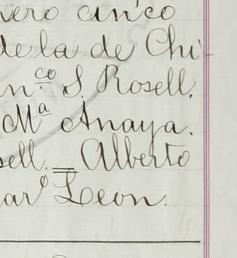 nero cinco
de la de Chi-
n.co S. Rosell.
Ma Anaya.
sell. = Alberto
aro Leon.